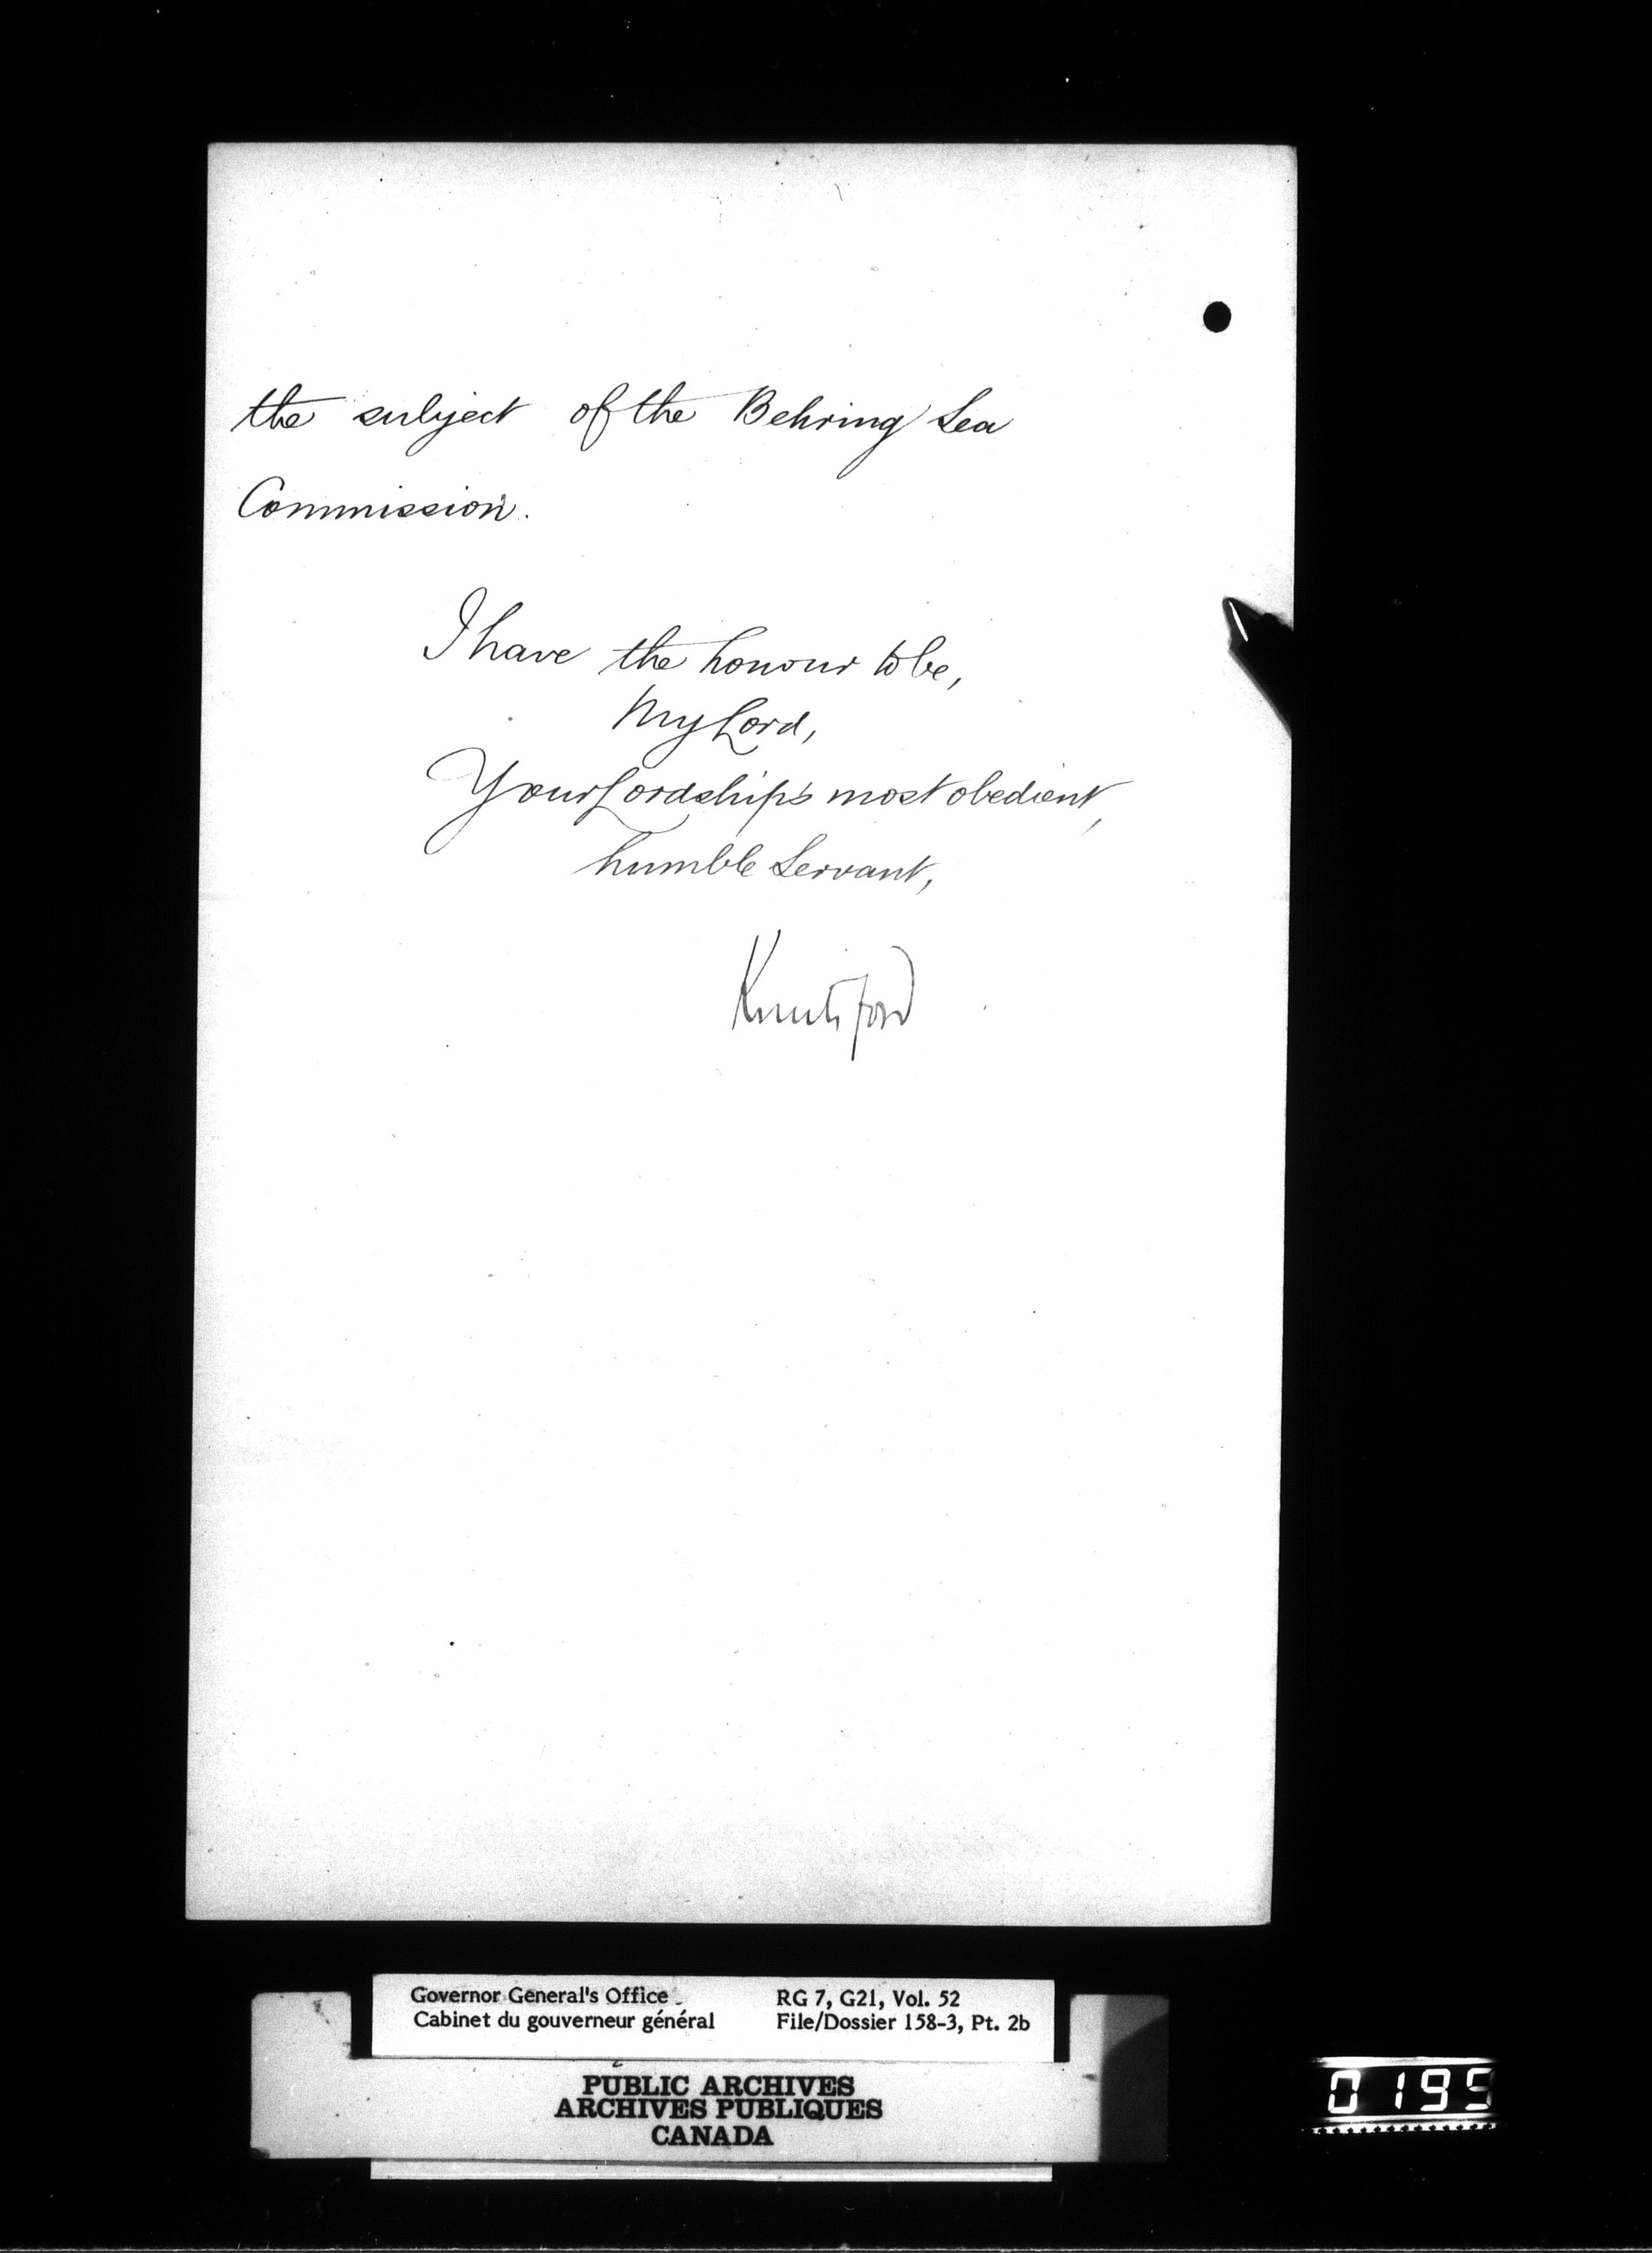 the subject of the Behring Sea
Commission.
I have the honour to be,
My Lord,
Your Lordship's most obedient,
humble Servant,
Knutsford
Governor General's Office
Cabinet du gouverneur général
RG 7, G21, Vol. 52
File/Dossier 158-3, Pt. 2b
PUBLIC ARCHIVES
ARCHIVES PUBLIQUES
CANADA
0195